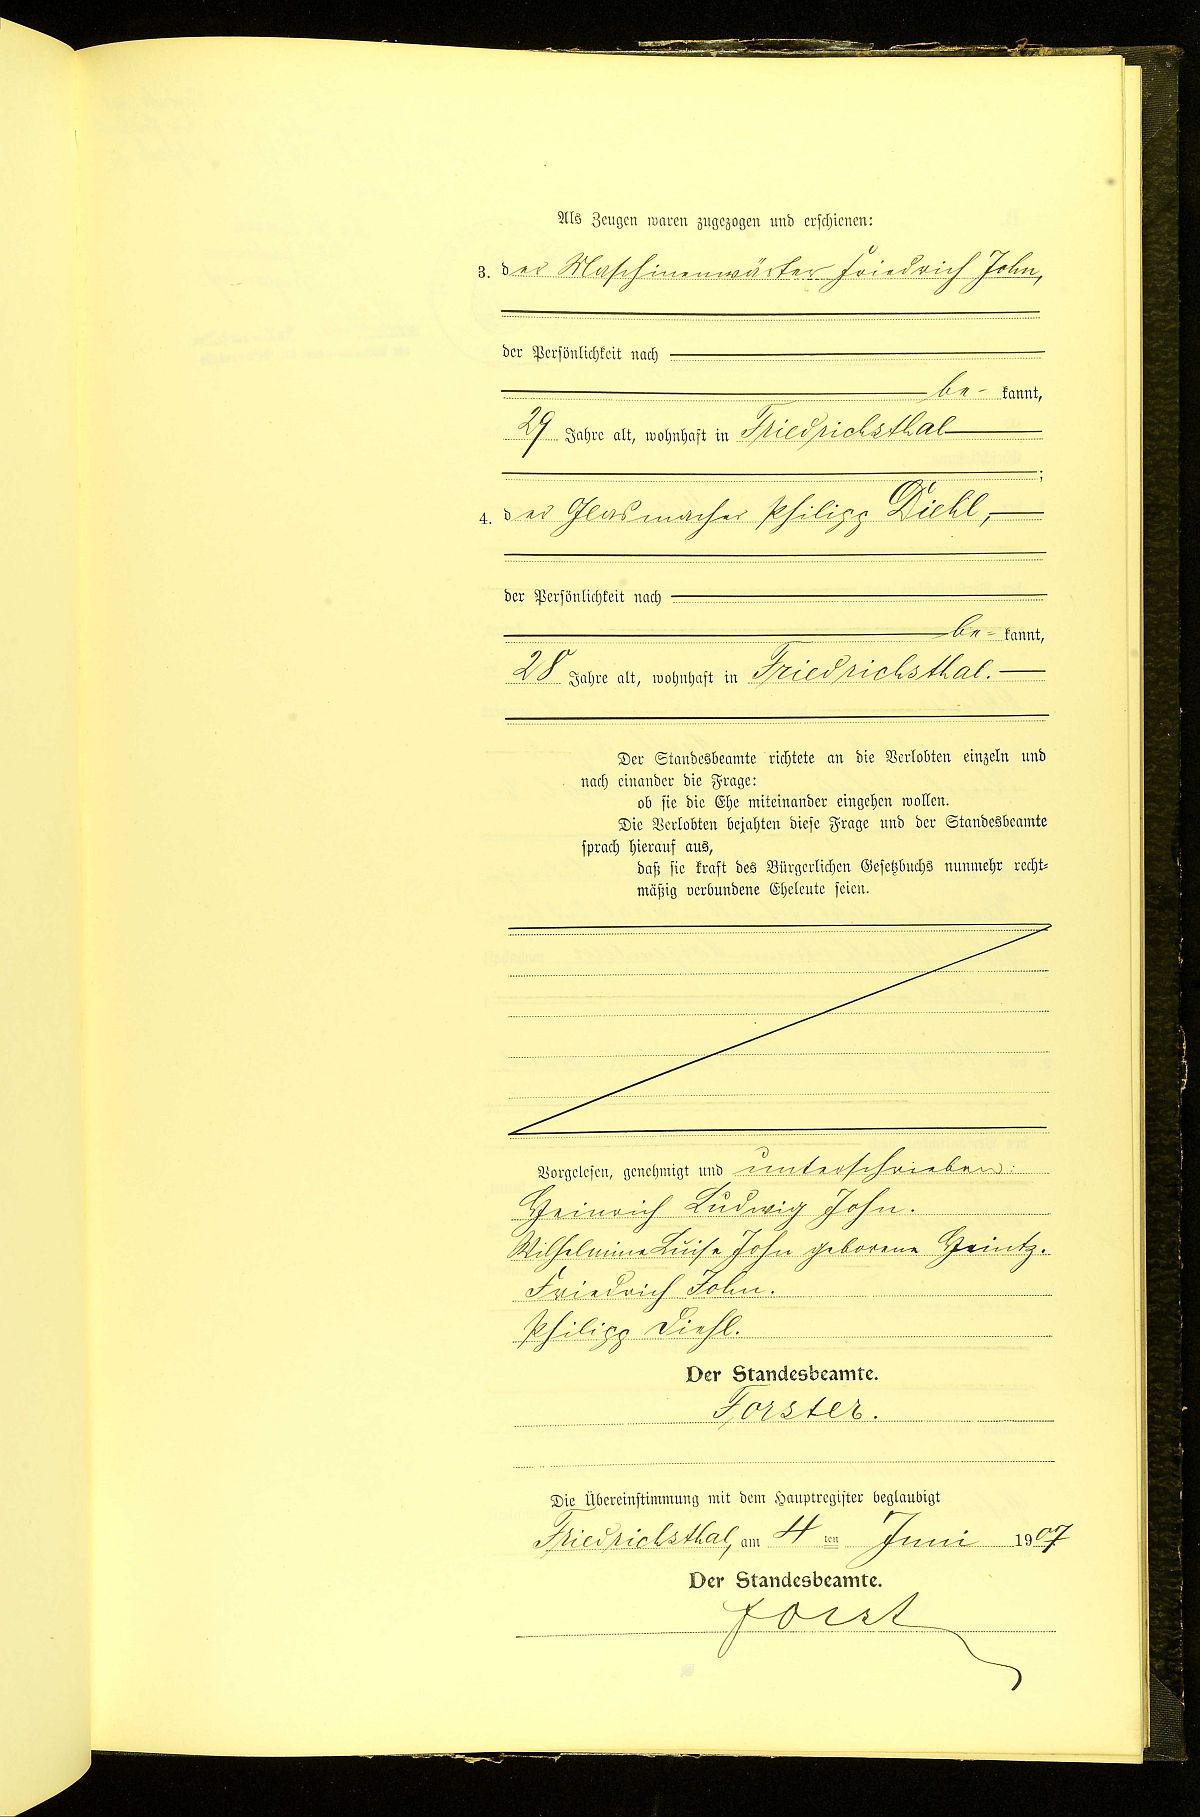 Als Zeugen waren zugezogen und erschienen:
3. der Maschinenwärter Friedrich John,
der Persönlichkeit nach
be- kannt,
29 Jahre alt, wohnhaft in Friedrichsthal
;
4. der Glasmacher Philipp Diehl,
der Persönlichkeit nach
be- kannt,
28 Jahre alt, wohnhaft in Friedrichsthal.
Der Standesbeamte richtete an die Verlobten einzeln und
nach einander die Frage:
ob sie die Ehe miteinander eingehen wollen.
Die Verlobten bejahten diese Frage und der Standesbeamte
sprach hierauf aus,
daß sie kraft des Bürgerlichen Gesetzbuchs nunmehr recht-
mäßig verbundene Eheleute seien.
Vorgelesen, genehmigt und unterschrieben:
Heinrich Ludwig John.
Wilhelmine Luise John geborene Heintz.
Friedrich John.
Philipp Diehl.
Der Standesbeamte.
Forster.
Die Übereinstimmung mit dem Hauptregister beglaubigt
Friedrichsthal, am 4 ten Juni 1907
Der Standesbeamte.
Forst